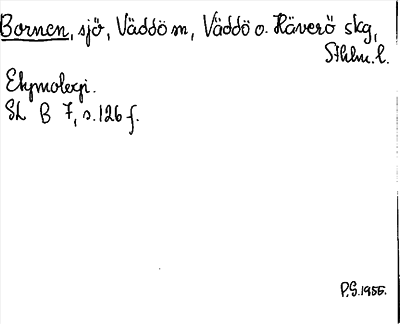 Bornen, sjö, Väddö sn, Väddö o. Häverö skg,
Sthlm. l.
Etymologi.
SL B 7, s. 126 f.
P.S. 1955.